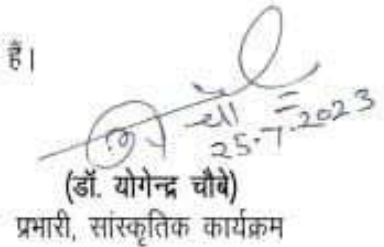 हैं।
25.7.2023
(डॉ. योगेन्द्र चौबे)
प्रभारी, सांस्कृतिक कार्यक्रम